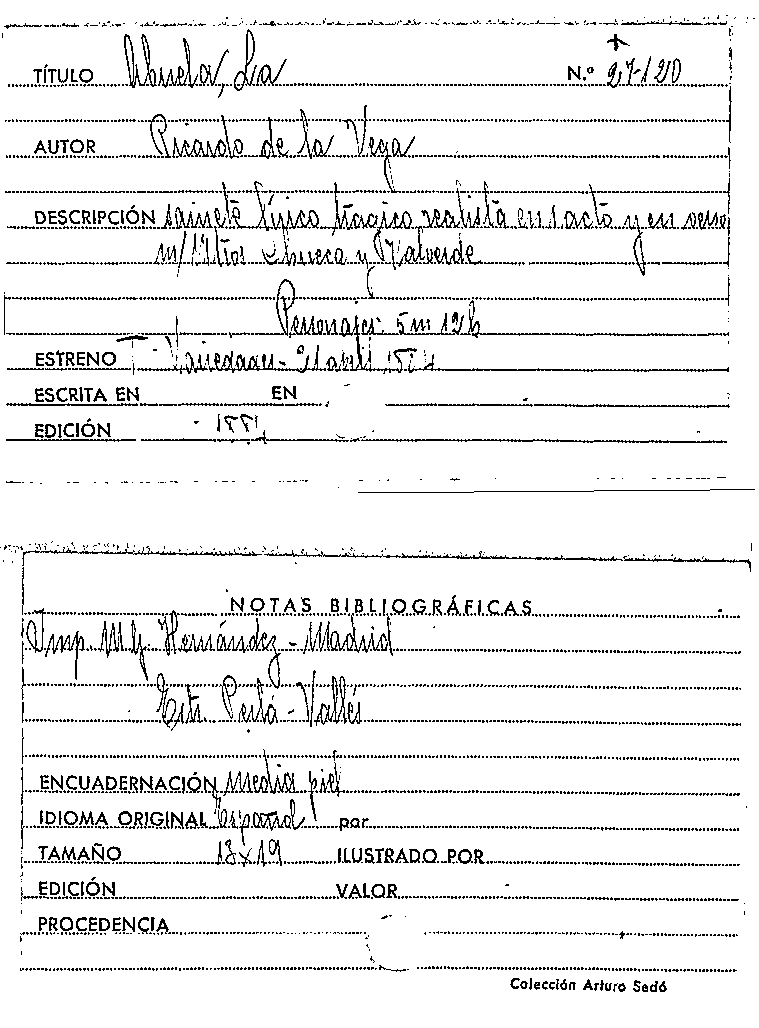 TÍTULO Abuela, La N.º 27-120
AUTOR Ricardo de la Vega
DESCRIPCIÓN sainete lírico trágico realista en 1 acto y en verso
m/ Mtros Chueca y Valverde
Personajes 5m 12h
ESTRENO T. Variedades - 21 abril 1884
ESCRITA EN EN
EDICIÓN 1884
NOTAS BIBLIOGRÁFICAS
Imp. M. G. Hernández - Madrid
Estr. Perlá - Vallés
ENCUADERNACIÓN media piel
IDIOMA ORIGINAL Español por
TAMAÑO 13x19 ILUSTRADO POR
EDICIÓN VALOR
PROCEDENCIA
Colección Arturo Sedó